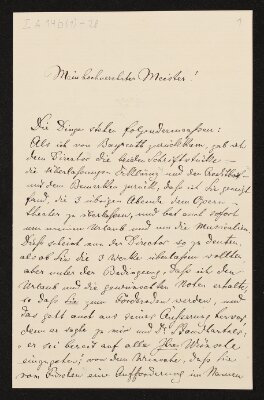 I A 14b(1)-28
1
Mein hochverehrter Meister!
Die Dinge stehen folgendermassen:
Als ich von Bayreuth zurückkam, gab ich
dem Director die beiden Schriftstücke –
die Überlassungs Erklärung und den
mit dem Bemerken zurück, dass ich Sie geneigt
fand, die 3 übrigen Abende dem Opern-
theater zu überlassen, und bat auch sofort
um meinen Urlaub und um die Musikalien
Dieß scheint nun der Director so zu deuten,
als ob Sie die 3 Werke überlassen wollten
aber unter der Bedingung, daß ich den
Urlaub und die gewünschten Noten erhalte,
so dass Sie zum werden, und
das geht auch aus seiner Äusserung hervor,
denn er sagte zu mir und Dr
"er sei bereit auf alle Ihre Wünsche
einzugehen", von dem Wunsche, dass Sie
vom eine Aufforderung im Namen